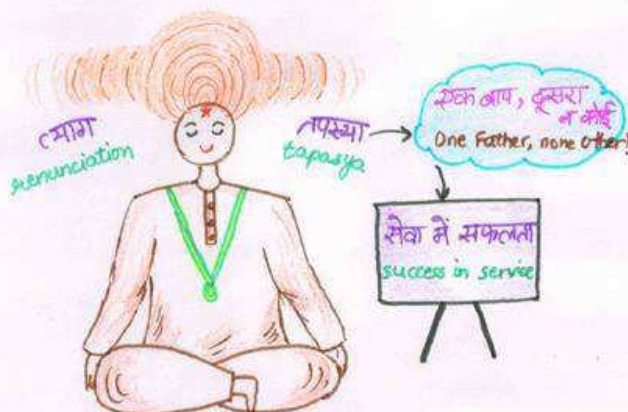 त्याग
renunciation
तपस्या
tapasya
एक बाप, दूसरा
न कोई
One Father, none other!
सेवा में सफलता
success in service